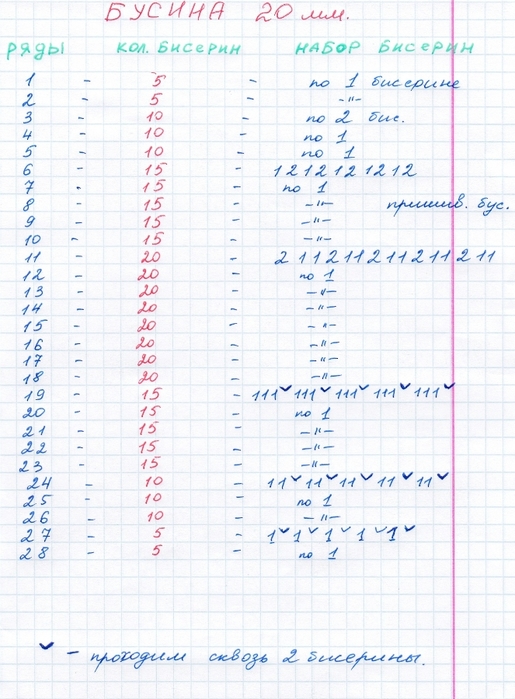 БУСИНА 20 мм.
РЯДЫ КОЛ. БИСЕРИН НАБОР БИСЕРИН
1 - 5 - по 1 бисерине
2 - 5 - -"-
3 - 10 - по 2 бис.
4 - 10 - по 1
5 - 10 - по 1
6 - 15 - 1 2 1 2 1 2 1 2 1 2
7 - 15 - по 1
8 - 15 - -"- пришив. бус.
9 - 15 - -"-
10 - 15 - -"-
11 - 20 - 2 1 1 2 1 1 2 1 1 2 1 1 2 1 1
12 - 20 - по 1
13 - 20 - -"-
14 - 20 - -"-
15 - 20 - -"-
16 - 20 - -"-
17 - 20 - -"-
18 - 20 - -"-
19 - 15 - 111✓ 111✓ 111✓ 111✓ 111✓
20 - 15 - по 1
21 - 15 - -"-
22 - 15 - -"-
23 - 15 - -"-
24 - 10 - 11✓ 11✓ 11✓ 11✓ 11✓
25 - 10 - по 1
26 - 10 - -"-
27 - 5 - 1✓ 1✓ 1✓ 1✓ 1✓
28 - 5 - по 1
✓ - проходим сквозь 2 бисерины.